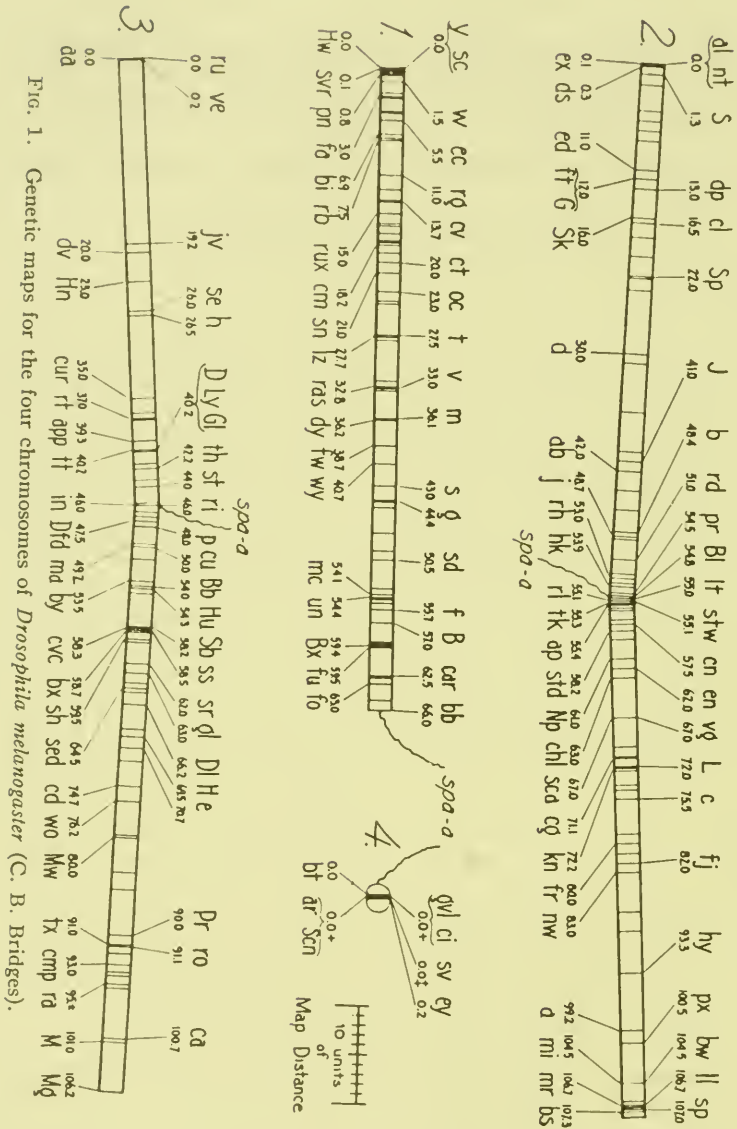 2.
al nt S dp cl Sp J b rd pr Bl lt stw cn en vg L c fj hy px bw ll sp
0.0 1.3 13.0 16.5 22.0 41.0 48.4 51.0 54.5 54.8 55.0 55.1 57.5 62.0 67.0 72.0 75.5 82.0 93.3 100.5 104.5 106.7 107.0
0.1 0.3 11.0 12.0 16.0 30.0 42.0 48.7 53.0 53.9 55.1 55.3 55.4 58.2 61.0 63.0 67.0 71.1 72.2 80.0 83.0 99.2 104.5 106.7 107.3
ex ds ed ft G Sk d ab j rh hk rl tk ap std Np chl sca cg kn fr nw a mi mr bs
spa-a
1.
y sc w ec rg cv ct oc t v m s g sd f B car bb
0.0 1.5 5.5 11.0 13.7 20.0 23.0 27.5 33.0 36.1 43.0 44.4 50.5 55.7 57.0 62.5 66.0
0.0 0.1 0.8 3.0 6.9 7.5 15.0 18.2 21.0 27.7 32.8 36.2 38.7 40.7 54.1 54.4 59.4 59.5 65.0
Hw svr pn fa bi rb rux cm sn lz ras dy tw wy mc un Bx fu fo
spa-a
4.
gvl ci sv ey
0.0+ 0.0‡ 0.2
0.0 0.0+
bt ar Scn
10 units
of
Map Distance
3.
ru ve jv se h D Ly Gl th st ri p cu Bb Hu Sb ss sr gl Dl He Pr ro ca
0.0 0.2 19.2 26.0 26.5 40.2 42.2 44.0 46.0 48.0 50.0 54.0 54.3 58.2 58.5 62.0 63.0 66.2 69.5 70.7 90.0 91.1 100.7
0.0 20.0 23.0 35.0 37.0 39.3 40.2 46.0 47.5 49.2 53.5 58.3 58.7 59.5 64.5 74.7 76.2 80.0 91.0 93.0 101.0 106.2
aa dv Hn cur rt app tt in Dfd md by cvc bx sh sed cd wo Mw tx cmp ra M Mg
spa-a
FIG. 1. Genetic maps for the four chromosomes of Drosophila melanogaster (C. B. Bridges).